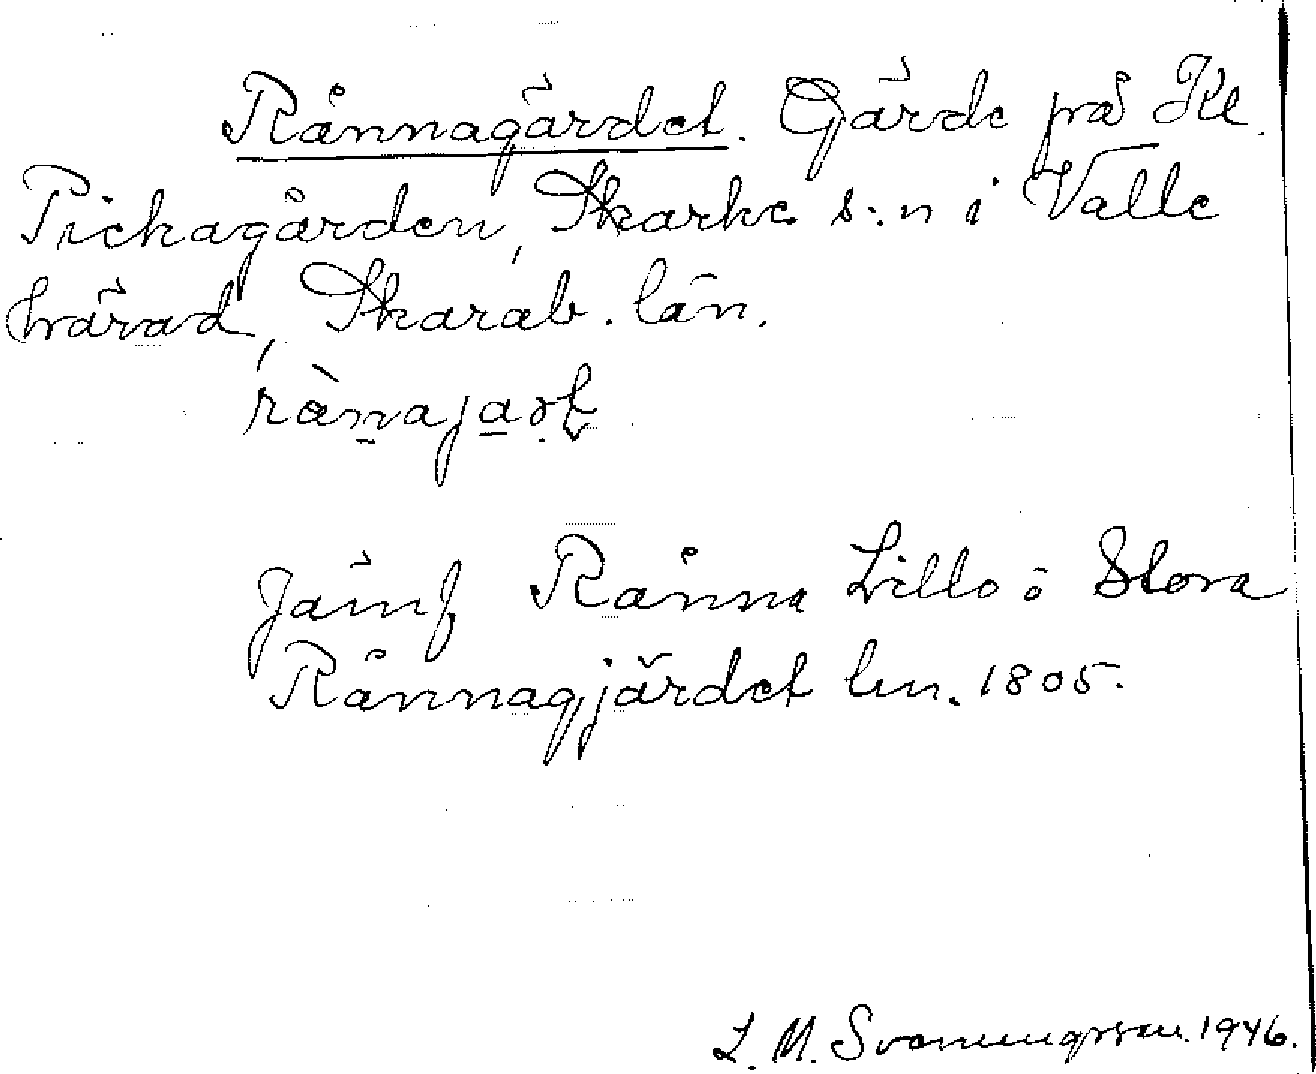 Rånnagärdet. Gärde på Kl.
Pickagården, Skarke s:n i Valle
härad, Skarab. län.
Jämf Rånna Lillo ö Stora
Rånnagjärdet lm. 1805.
L. M. Svenungsson. 1946.